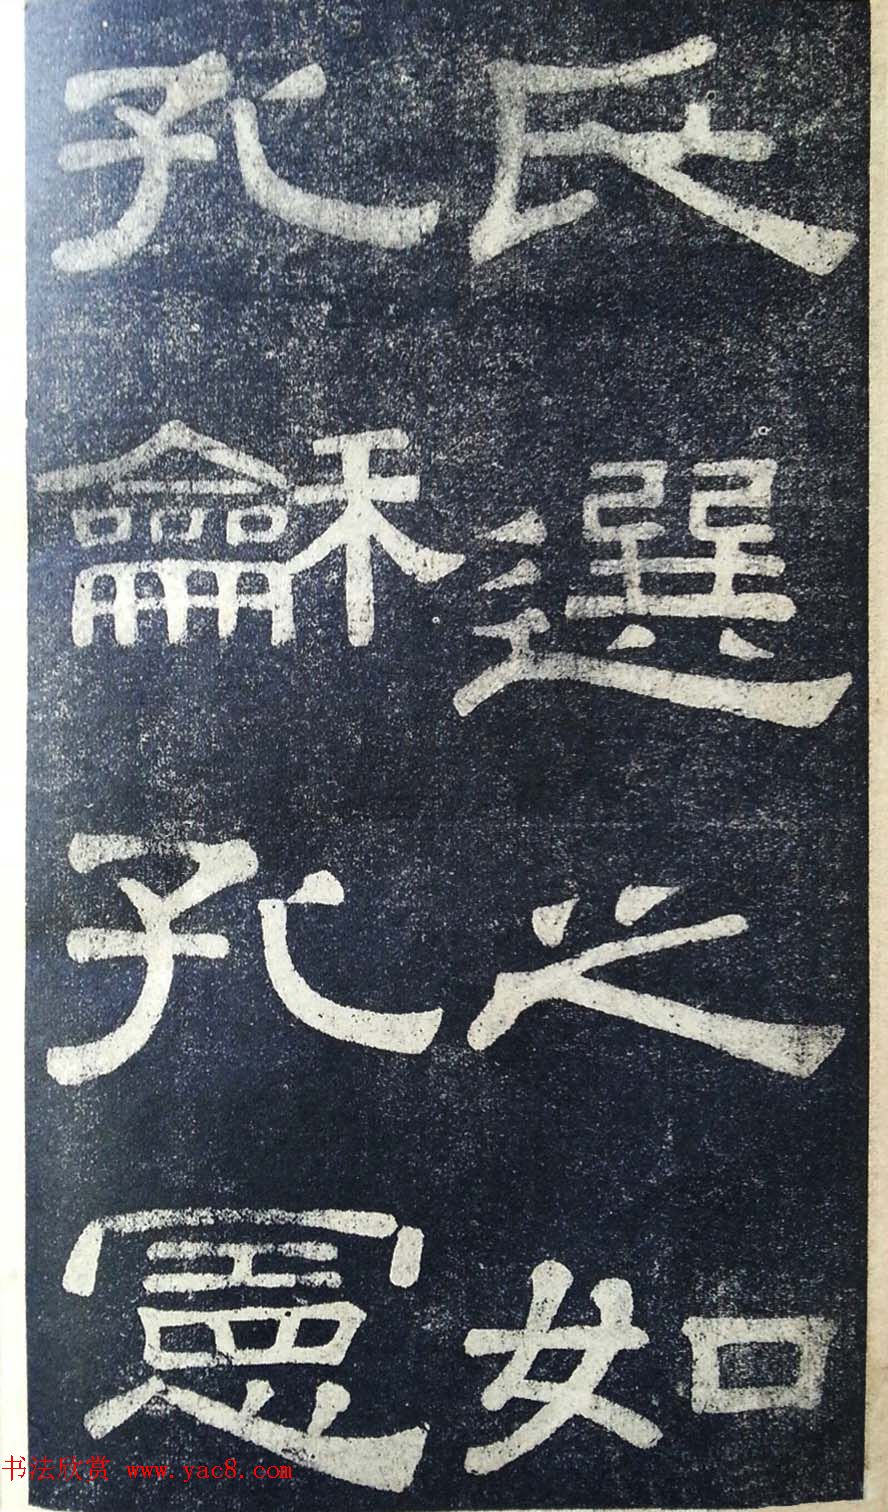 民選之如
孔龢孔憲
书法欣赏 www.yac8.com